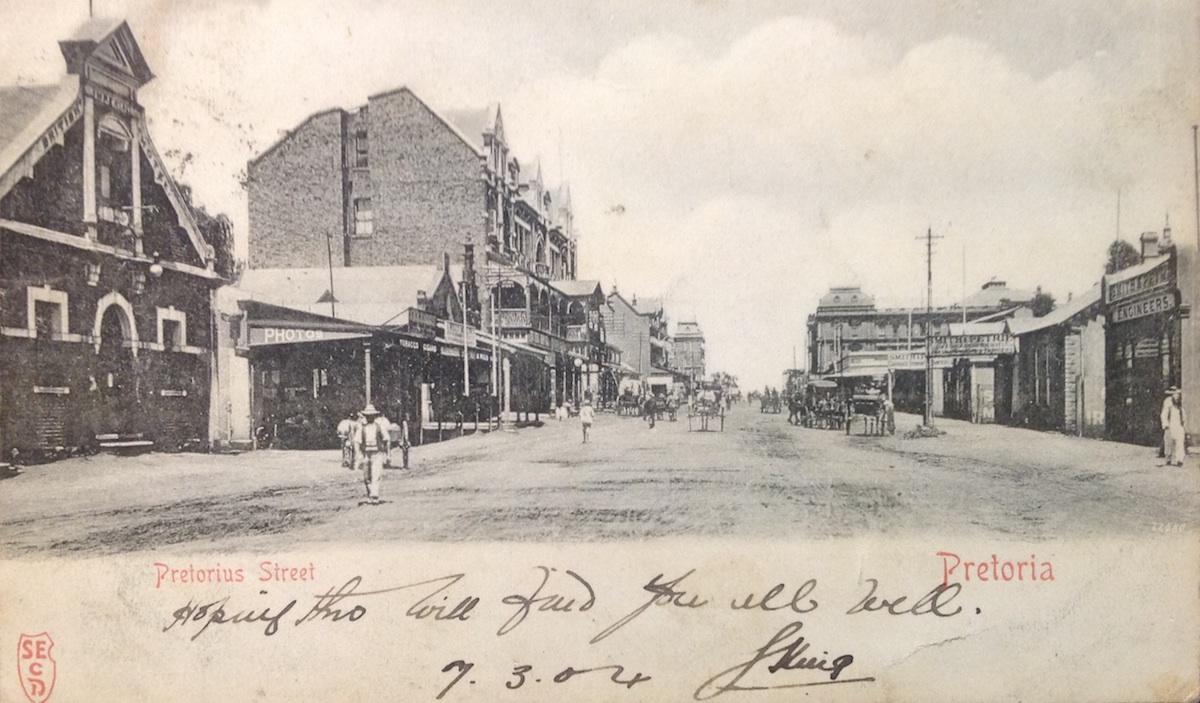 BRITISH
PHOTOS
TOBACCO CIGARS
SMITH
ENGINEERS
Pretorius Street
Pretoria
Hoping this will find you all well.
7.3.04 King
SE
C
D